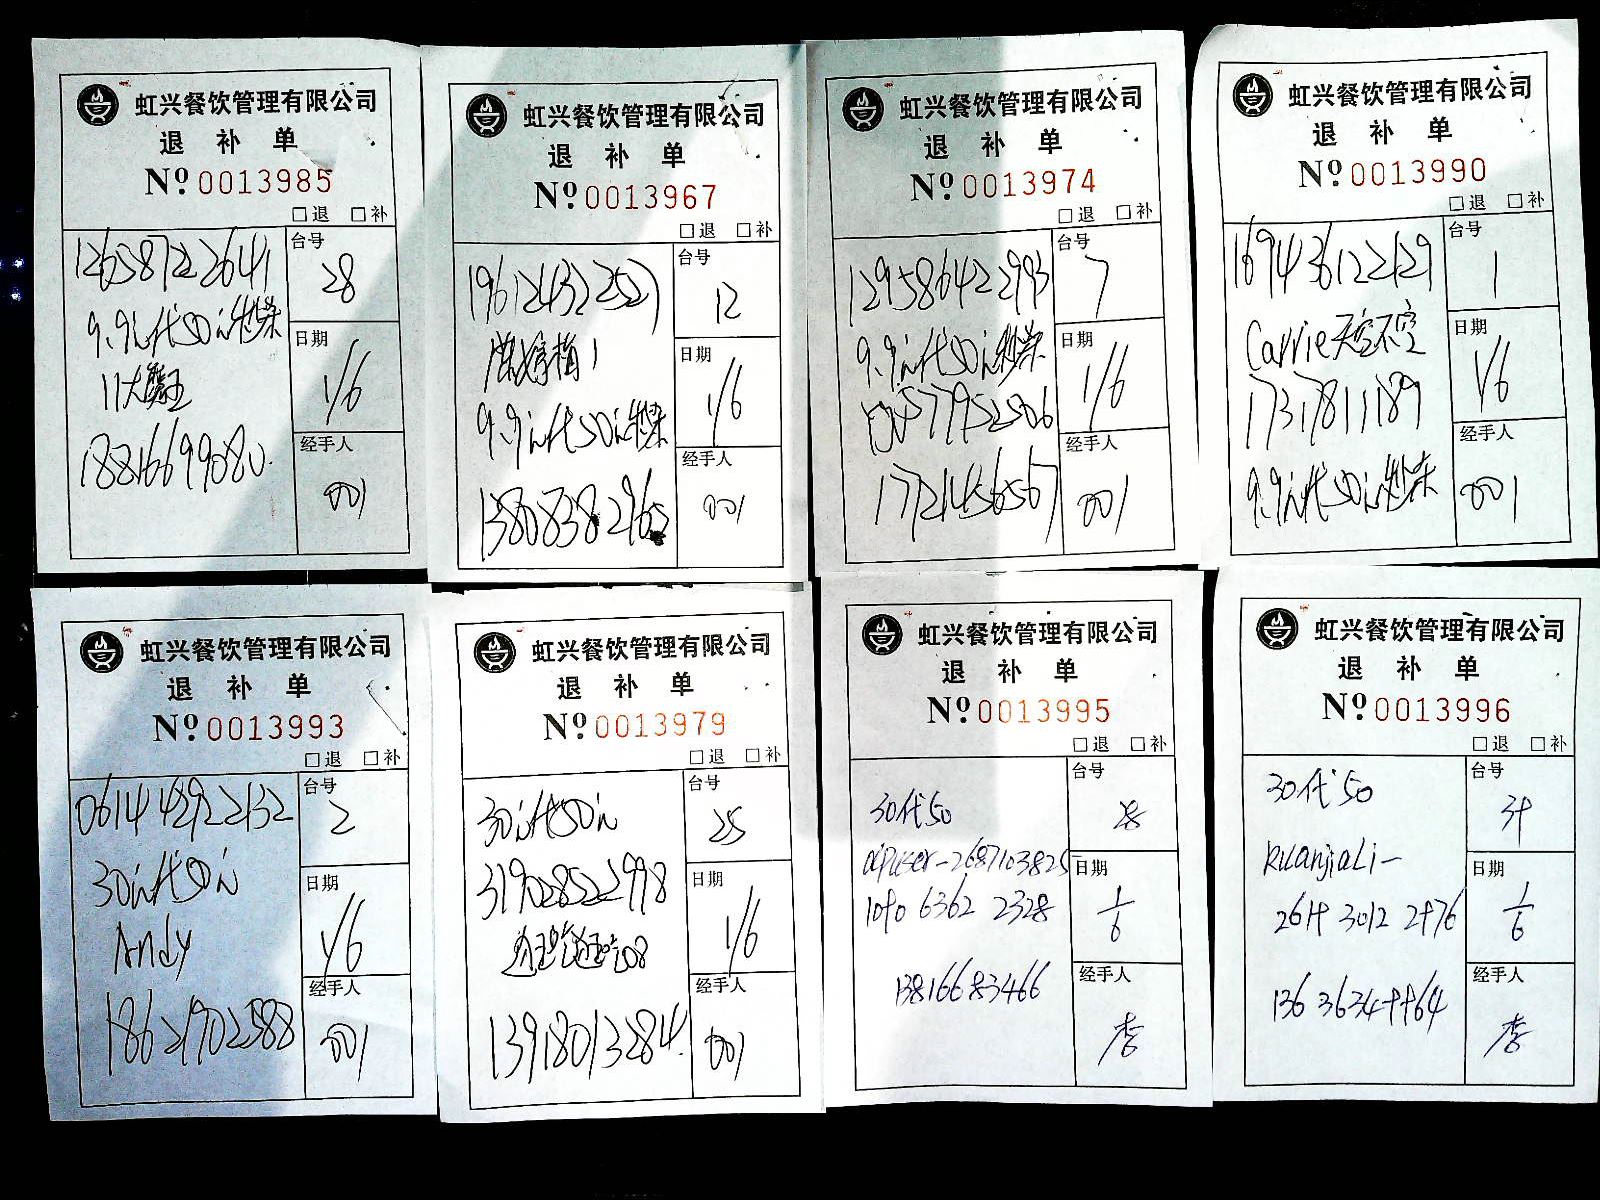 虹兴餐饮管理有限公司
退 补 单
Nº 0013985
□退 □补
126587222641
9.9元代50元炒菜
11大魔王
18816699080
台号
28
日期
1/6
经手人
001
虹兴餐饮管理有限公司
退 补 单
Nº 0013967
□退 □补
196124322527
9.9元代50元炒菜
13808382965
台号
12
日期
1/6
经手人
001
虹兴餐饮管理有限公司
退 补 单
Nº 0013974
□退 □补
129586422993
9.9元代50元炒菜
17721456567
台号
7
日期
1/6
经手人
001
虹兴餐饮管理有限公司
退 补 单
Nº 0013990
□退 □补
169436122129
Carrie天空不空
17317811189
9.9元代50元炒菜
台号
1
日期
1/6
经手人
001
虹兴餐饮管理有限公司
退 补 单
Nº 0013993
□退 □补
061442922132
30元代50元
Andy
18621902588
台号
2
日期
1/6
经手人
001
虹兴餐饮管理有限公司
退 补 单
Nº 0013979
□退 □补
30元代50元
319028522998
13918013284
台号
25
日期
1/6
经手人
001
虹兴餐饮管理有限公司
退 补 单
Nº 0013995
□退 □补
30代50
1090 6362 2328
13816683466
台号
日期
1/6
经手人
李
虹兴餐饮管理有限公司
退 补 单
Nº 0013996
□退 □补
30代50
kuanjiali-
2614 3012 2476
台号
日期
1/6
经手人
李